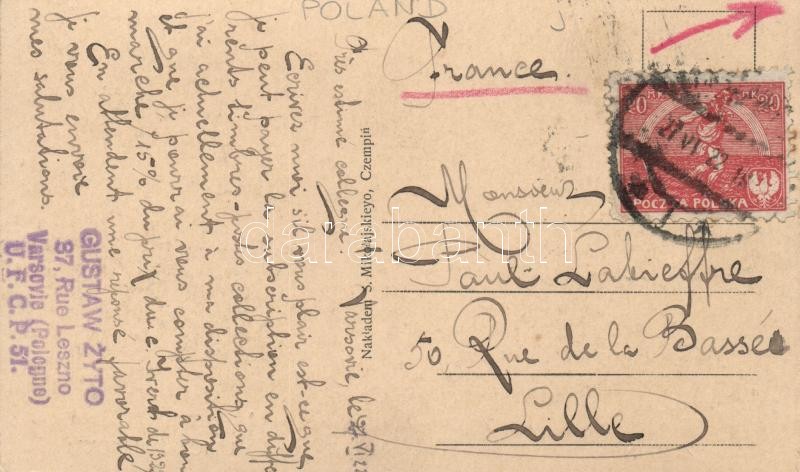 POLAND
France.
20 MK. MK. 20
27 VI 22
POCZTA POLSKA
Monsieur
Paul Labieffre
50, Rue de la Bassée
Lille
Nakładem S. Mikołajskieyo, Czempiń
darabanth
Varsovie, le 27 VI 22
Très estimé collègue
Ecrives moi s'il vous plaît est-ce que
je peut payer la souscription en diffe-
rents timbres-poste collections, que
j'ai actuellement à ma disposition
et que je pourrai vous compter à bon
marché 15% du prix du c/ Yvert de 1922
En attendent une réponse favorable
je vous envoie
mes salutations.
GUSTAW ŻYTO
37, Rue Leszno
Varsovie (Pologne)
U. F. C. P. 51.